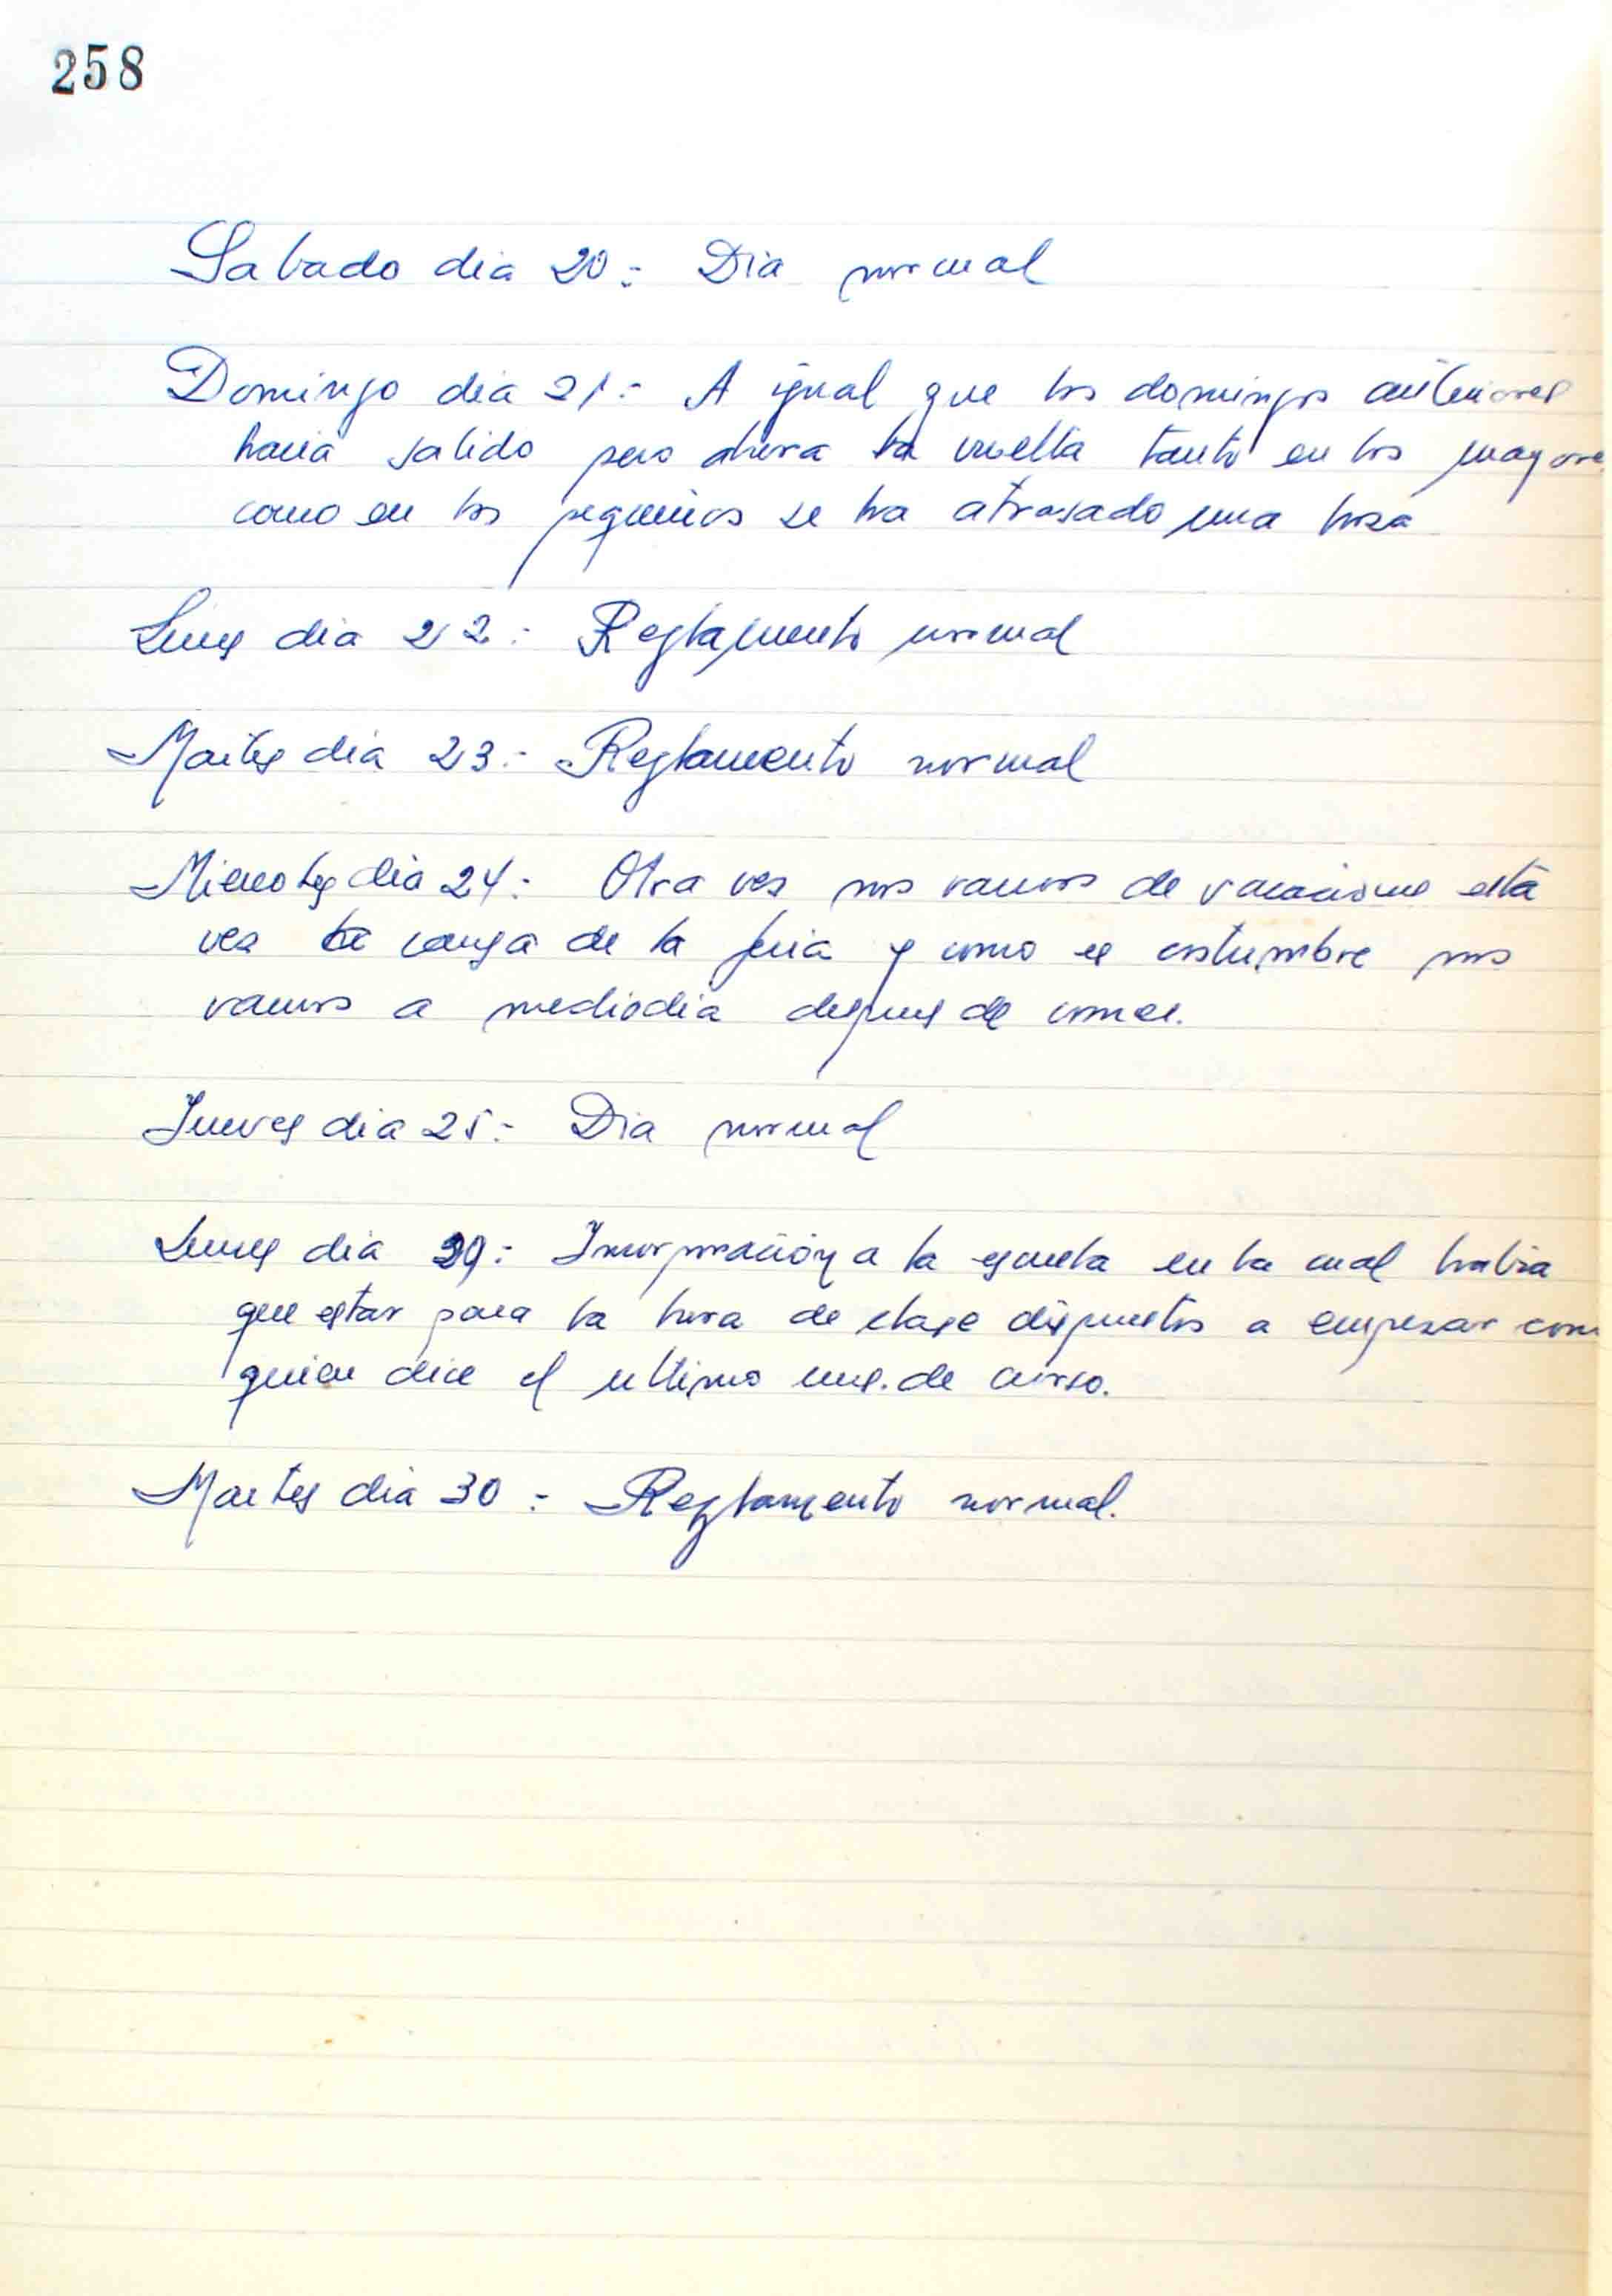 258
Sabado dia 20:- Dia normal
Domingo dia 21:- A igual que los domingos anteriores
havia salido pero ahora la vuelta tanto en los mayore
como en los pequeños se ha atrasado una hora
Lunes dia 22:- Reglamento normal
Martes dia 23:- Reglamento normal
Mierotes dia 24:- Otra ves nos vamos de vacacione esta
ves causa de la feria y como es costumbre nos
vamos a mediodia despues de comer.
Jueves dia 25:- Dia normal
Lunes dia 29:- Incorporación a la escuela en la cual habia
que estar para la hora de clase dispuestos a empezar com
quien dice el ultimo mes de curso.
Martes dia 30:- Reglamento normal.